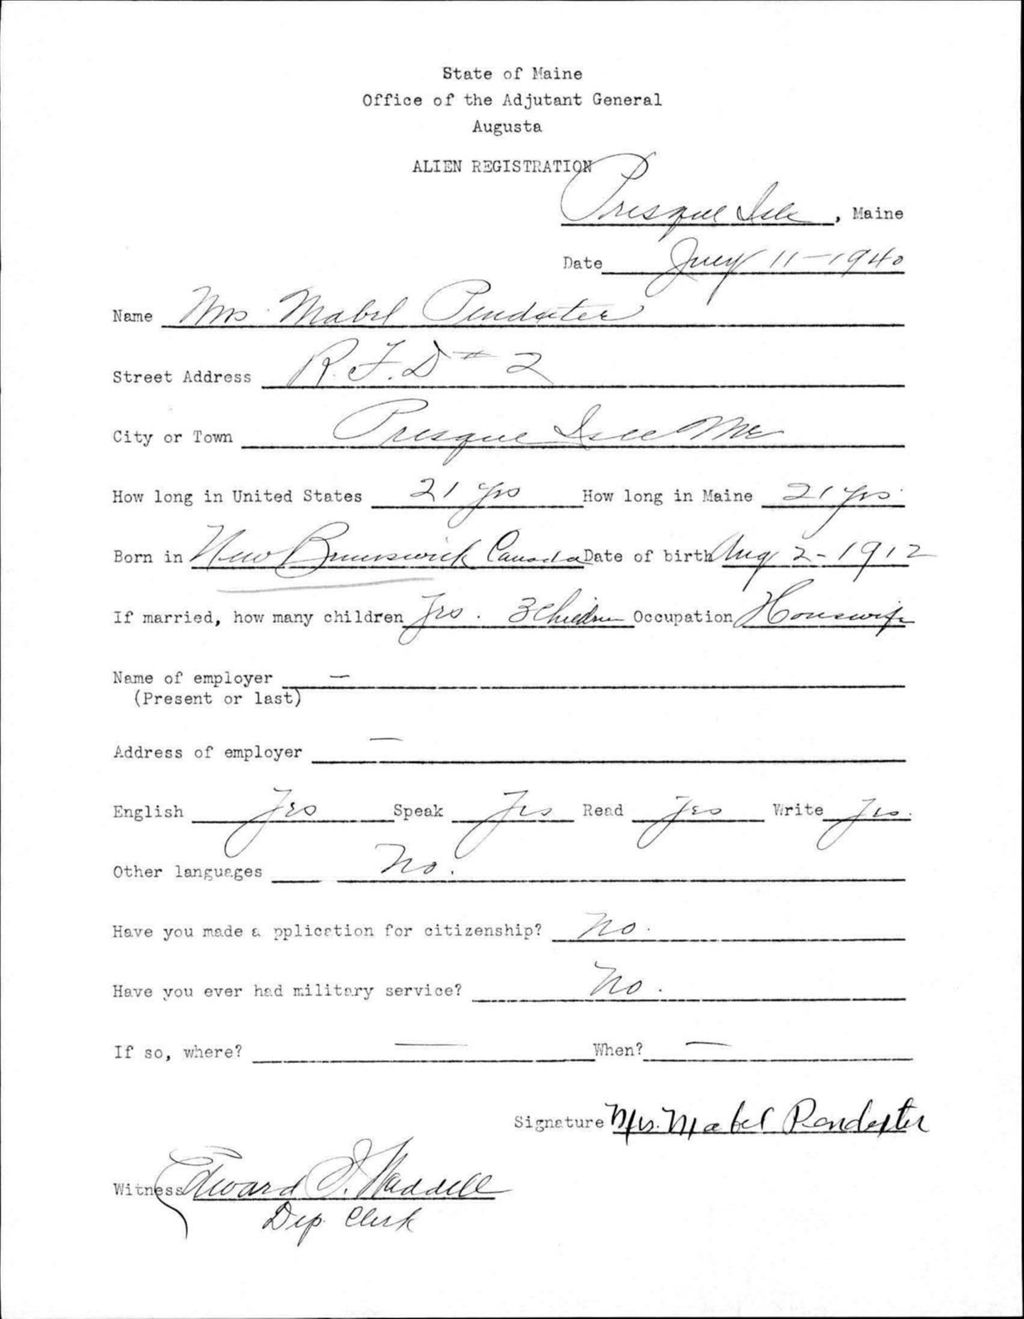 State of Maine
Office of the Adjutant General
Augusta
ALIEN REGISTRATION
Presque Isle, Maine
Date July 11-1940
Name Mrs Mabel Pendexter
Street Address R.F.D #2
City or Town Presque Isle Me
How long in United States 21 yrs How long in Maine 21 yrs.
Born in New Brunswick Canada Date of birth Aug 2-1912
If married, how many children Yes. 3 Children Occupation Housewife
Name of employer —
(Present or last)
Address of employer —
English Yes Speak Yes Read Yes Write Yes.
Other languages No.
Have you made a pplication for citizenship? No.
Have you ever had military service? No.
If so, where? — When? —
Signature Mrs. Mabel Pendexter
Witness Edward J. Waddell
Dep. Clerk